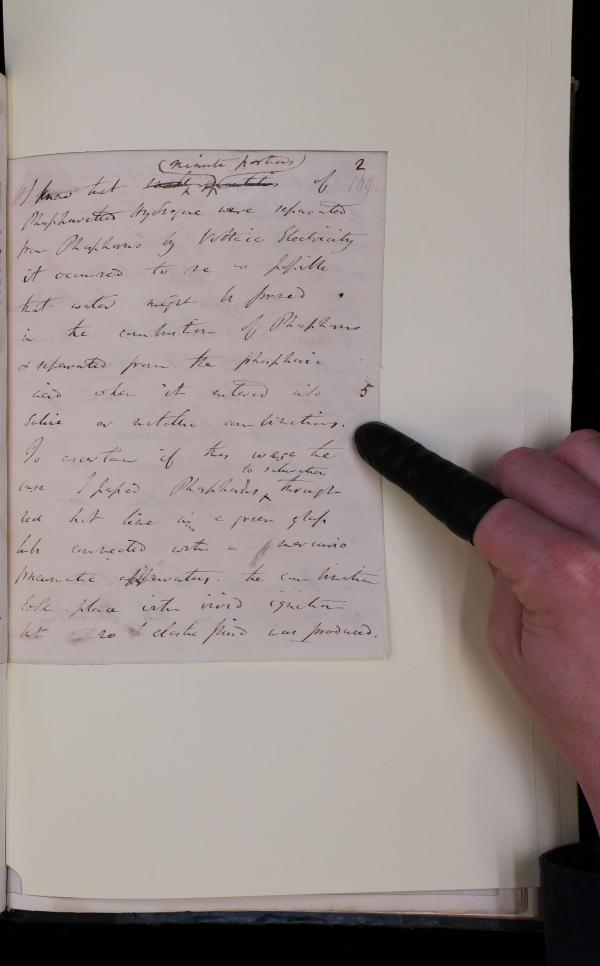 (minute portions) 2
I know that small quantities of 109.
Phosphuretted Hydrogene were separated
from Phosphorus by Voltaic Electricity
it occurred to me as possible
that water might be formed
in the combustion of Phosphorus
& separated from the phosphoric
acid when it entered into 5
Saline or metallic combinations.
To ascertain if this were the
to saturation
case I passed Phosphorus through
red hot lime in a green glass
tube connected with a mercurio
pneumatic apparatus. the combination
took place with vivid ignition
but no elastic fluid was produced.